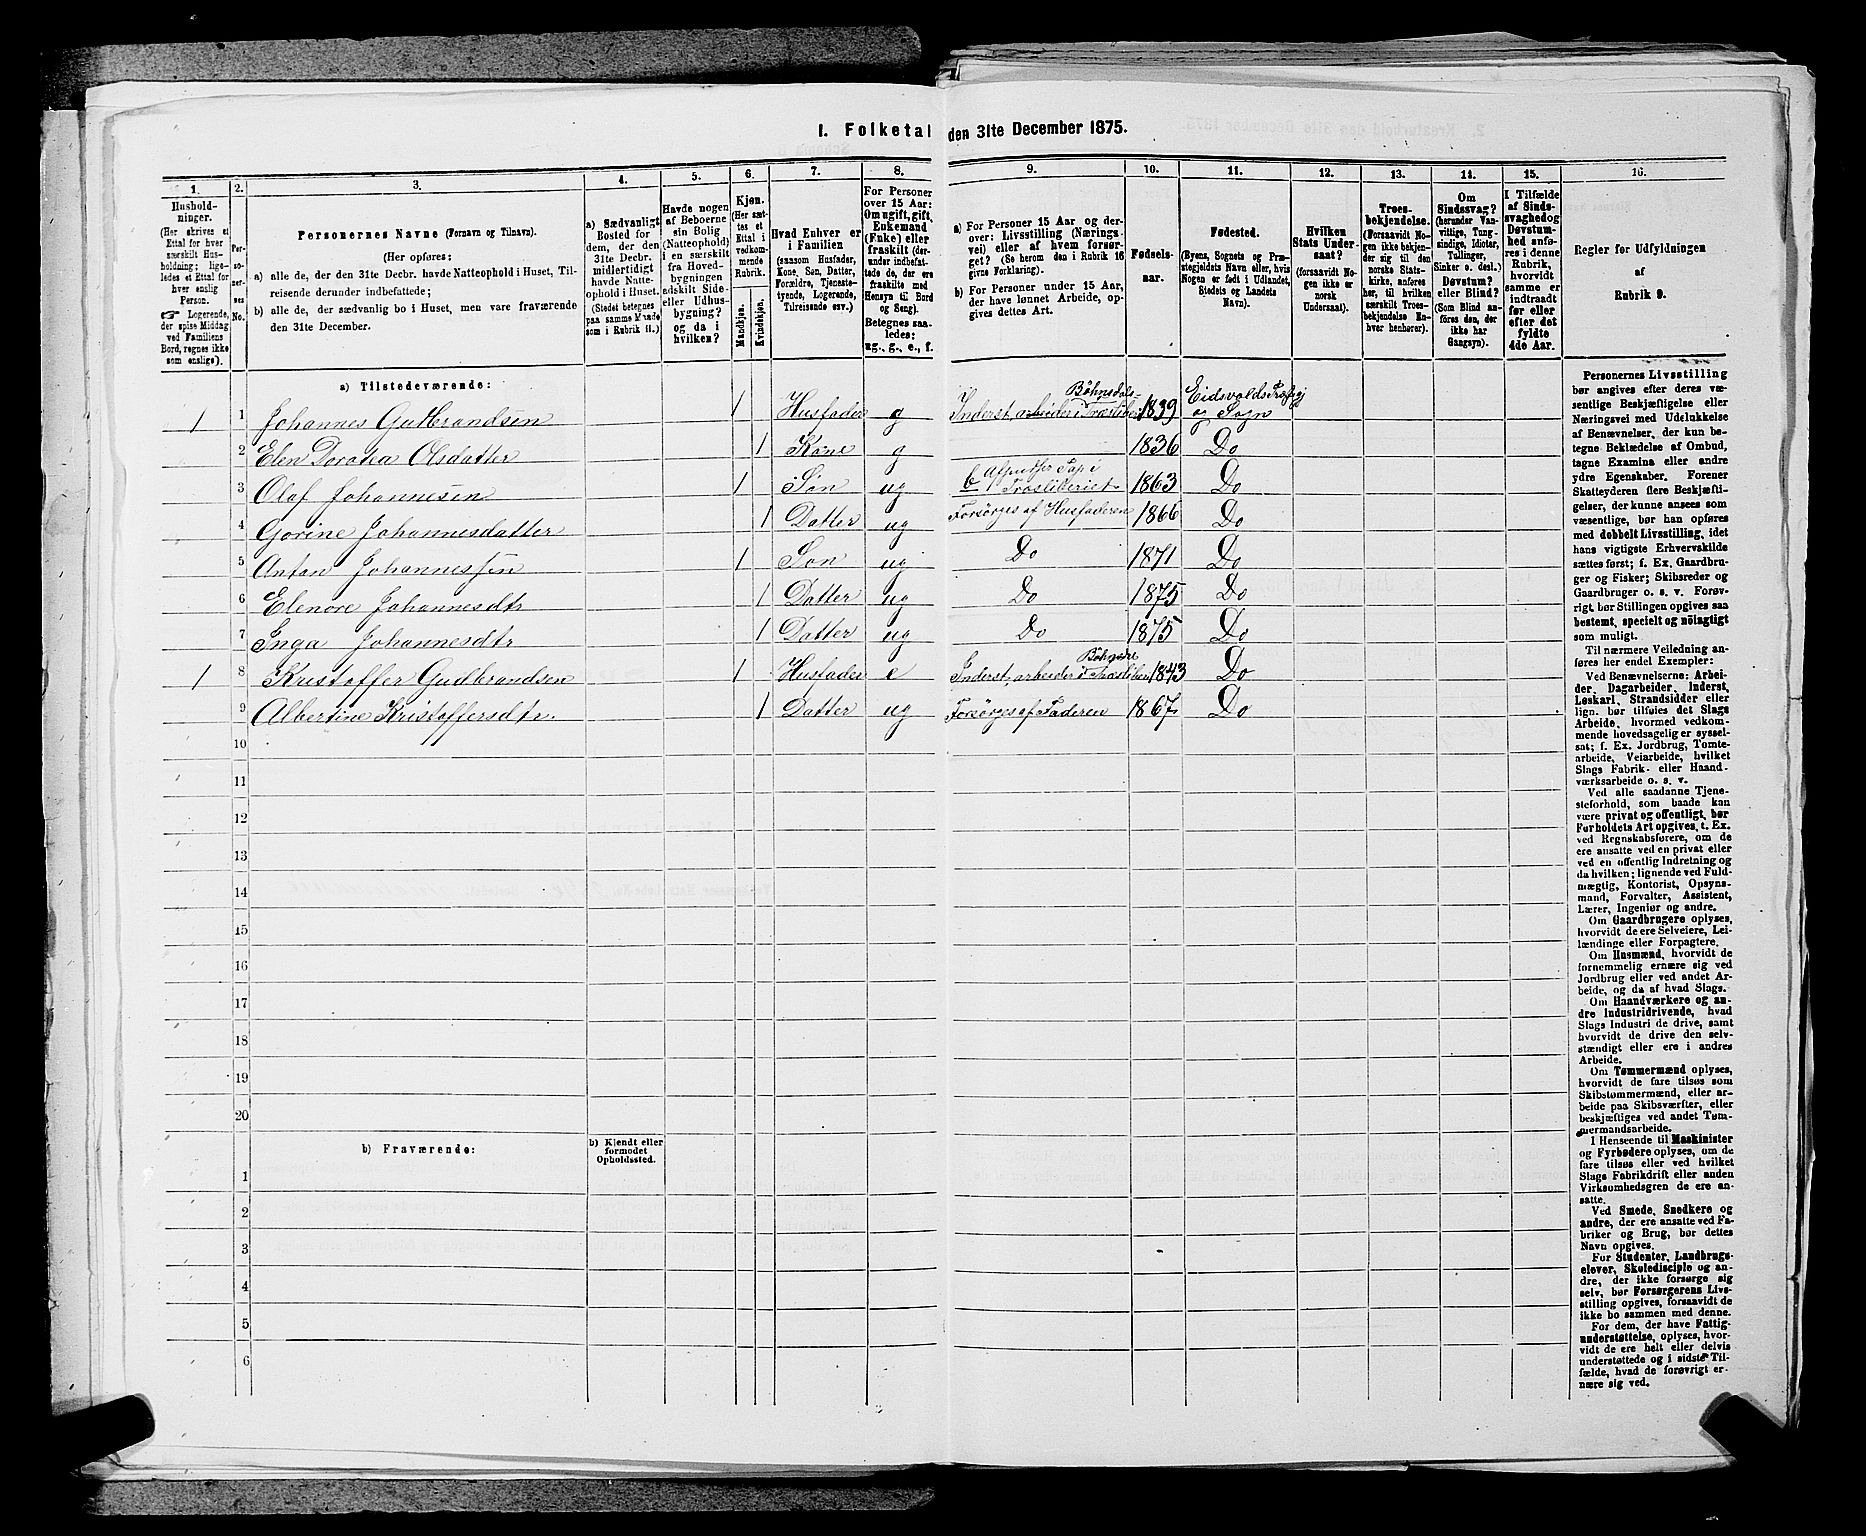 I. Folketal den 31te December 1875.
1. 2. 3. 4. 5. 6. 7. 8. 9. 10. 11. 12. 13. 14. 15. 16.
Hushold-
ninger.
(Her skrives et
Ettal for hver
særskilt Hus-
holdning; lige-
ledes et Ettal for
hver enslig
Person.
☞ Logerende,
der spise Middag
ved Familiens
Bord, regnes ikke
som enslige).
Per-
so-
ner-
nes
No.
Personernes Navne (Fornavn og Tilnavn).
(Her opføres:
a) alle de, der den 31te Decbr. havde Natteophold i Huset, Til-
reisende derunder indbefattede;
b) alle de, der sædvanlig bo i Huset, men vare fraværende
den 31te December.
a) Sædvanligt
Bosted for
dem, der den
31te Decbr.
midlertidigt
havde Natte-
ophold i Huset.
(Stedet betegnes
paa samme Maade
som i Rubrik 11.)
Havde nogen
af Beboerne
sin Bolig
(Natteophold)
i en særskilt
fra Hoved-
bygningen
adskilt Side-
eller Udhus-
bygning?
og da i
hvilken?
Kjøn.
(Her sæt-
tes et
Ettal i
vedkom-
mende
Rubrik.
Mandkjøn.
Kvindekjøn.
Hvad Enhver er
i Familien
(saasom Husfader,
Kone, Søn, Datter,
Forældre, Tjeneste-
tyende, Logerende,
Tilreisende osv.)
For Personer
over 15 Aar:
Om ugift, gift,
Enkemand
(Enke) eller
fraskilt (der-
under indbefat-
tede de, der ere
fraskilte med
Hensyn til Bord
og Seng).
Betegnes saa-
ledes:
ug., g., e., f.
a) For Personer 15 Aar og der-
over: Livsstilling (Nærings-
vei) eller af hvem forsør-
get? (Se herom den i Rubrik 16
givne Forklaring).
b) For Personer under 15 Aar,
der have lønnet Arbeide, op-
gives dettes Art.
Fødsels-
aar.
Fødested.
(Byens, Sognets og Præ-
stegjeldets Navn eller, hvis
Nogen er født i Udlandet,
Stedets og Landets
Navn).
Hvilken
Stats Under-
saat?
(forsaavidt No-
gen ikke er
norsk
Undersaat).
Troes-
bekjendelse.
(Forsaavidt Nogen ikke bekjen-
der sig til den
norske Stats-
kirke, anføres
her, til hvilken
særskilt Troes-
bekjendelse En-
hver henhører).
Om
Sindssvag?
(herunder Van-
vittige, Tung-
sindige, Idioter,
Tullinger,
Sinker o. desl.)
Døvstum?
eller Blind?
(Som Blind an-
føres den, der
ikke har
Gangsyn).
I Tilfælde
af Sinds-
svaghed og
Døvstum-
hed anfø-
res i denne
Rubrik,
hvorvidt
samme er
indtraadt
før eller
efter det
fyldte
4de Aar.
Regler for Udfyldningen
af
Rubrik 9.
a) Tilstedeværende:
1 1 Johannes Gutbrandsen 1 Husfader g Inderst. arbeider i Bøhnsdals- Træsliberi 1839 Eidsvolds Præstgj og Sogn
2 Elen Dorotea Olsdatter 1 Kone g 1836 Do
3 Olaf Johannesen 1 Søn ug b Træsliberiet 1863 Do
4 Gorine Johannesdatter 1 Datter ug Forsørges af Husfaderen 1866 Do
5 Anton Johannessen 1 Søn ug Do 1871 Do
6 Elenore Johannesdtr 1 Datter ug Do 1875 Do
7 Inga Johannesdtr 1 Datter ug Do 1875 Do
1 8 Kristoffer Gudbrandsen 1 Husfader e Inderst, arbeider i Træsliberi 1843 Do
9 Albertine Kristoffersdtr. 1 Datter ug Forsørges af Faderen 1867 Do
10
11
12
13
14
15
16
17
18
19
20
b) Fraværende:
b) Kjendt eller
formodet
Opholdssted.
1
2
3
4
5
6
Personernes Livsstilling
bør angives efter deres væ-
sentlige Beskjæftigelse eller
Næringsvei med Udelukkelse
af Benævnelser, der kun be-
tegne Beklædelse af Ombud,
tagne Examina eller andre
ydre Egenskaber. Forener
Skatteyderen flere Beskjæfti-
gelser, der kunne ansees som
væsentlige, bør han opføres
med dobbelt Livsstilling, idet
hans vigtigste Erhvervskilde
sættes først; f. Ex. Gaardbru-
ger og Fisker; Skibsreder og
Gaardbruger o. s. v. Forøv-
rigt bør Stillingen opgives saa
bestemt, specielt og nöiagtigt
som muligt.
Til nærmere Veiledning an-
føres her endel Exempler:
Ved Benævnelserne: Arbei-
der, Dagarbeider, Inderst,
Løskarl, Strandsidder eller
lign. bør tilføies det Slags
Arbeide, hvormed vedkom-
mende hovedsagelig er syssel-
sat; f. Ex. Jordbrug, Tomte-
arbeide, Veiarbeide, hvilket
Slags Fabrik- eller Haand-
værksarbeide o. s. v.
Ved alle saadanne Tjene-
steforhold, som baade kan
være privat og offentligt, bør
Forholdets Art opgives, t. Ex.
ved Regnskabsførere, om de
ere ansatte ved en privat eller
ved en offentlig Indretning og
da hvilken; lignende ved Fuld-
mægtig, Kontorist, Opsyns-
mand, Forvalter, Assistent,
Lærer, Ingeniør og andre.
Om Gaardbrugere oplyses,
hvorvidt de ere Selveiere, Lei-
lændinge eller Forpagtere.
Om Husmænd, hvorvidt de
fornemmelig ernære sig ved
Jordbrug eller ved andet Ar-
beide, og da af hvad Slags.
Om Haandværkere og an-
dre Industridrivende, hvad
Slags Industri de drive, samt
hvorvidt de drive den selv-
stændigt eller ere i andres
Arbeide.
Om Tømmermænd oplyses,
hvorvidt de fare tilsøs som
Skibstømmermænd, eller ar-
beide paa Skibsværfter, eller
beskjæftiges ved andet Tøm-
mermandsarbeide.
I Henseende til Maskinister
og Fyrbødere oplyses, om de
fare tilsøs eller ved hvilket
Slags Fabrikdrift eller anden
Virksomhedsgren de ere an-
satte.
Ved Smede, Snedkere og
andre, der ere ansatte ved Fa-
briker og Brug, bør dettes
Navn opgives.
For Studenter, Landbrugs-
elever, Skoledisciple og an-
dre, der ikke forsørge sig
selv, bør Forsørgerens Livs-
stilling opgives, forsaavidt de
ikke bo sammen med denne.
For dem, der have Fattig-
understøttelse, oplyses, hvor-
vidt de ere helt eller delvis
understøttede og i sidste Til-
fælde, hvad de forøvrigt er-
nære sig ved.